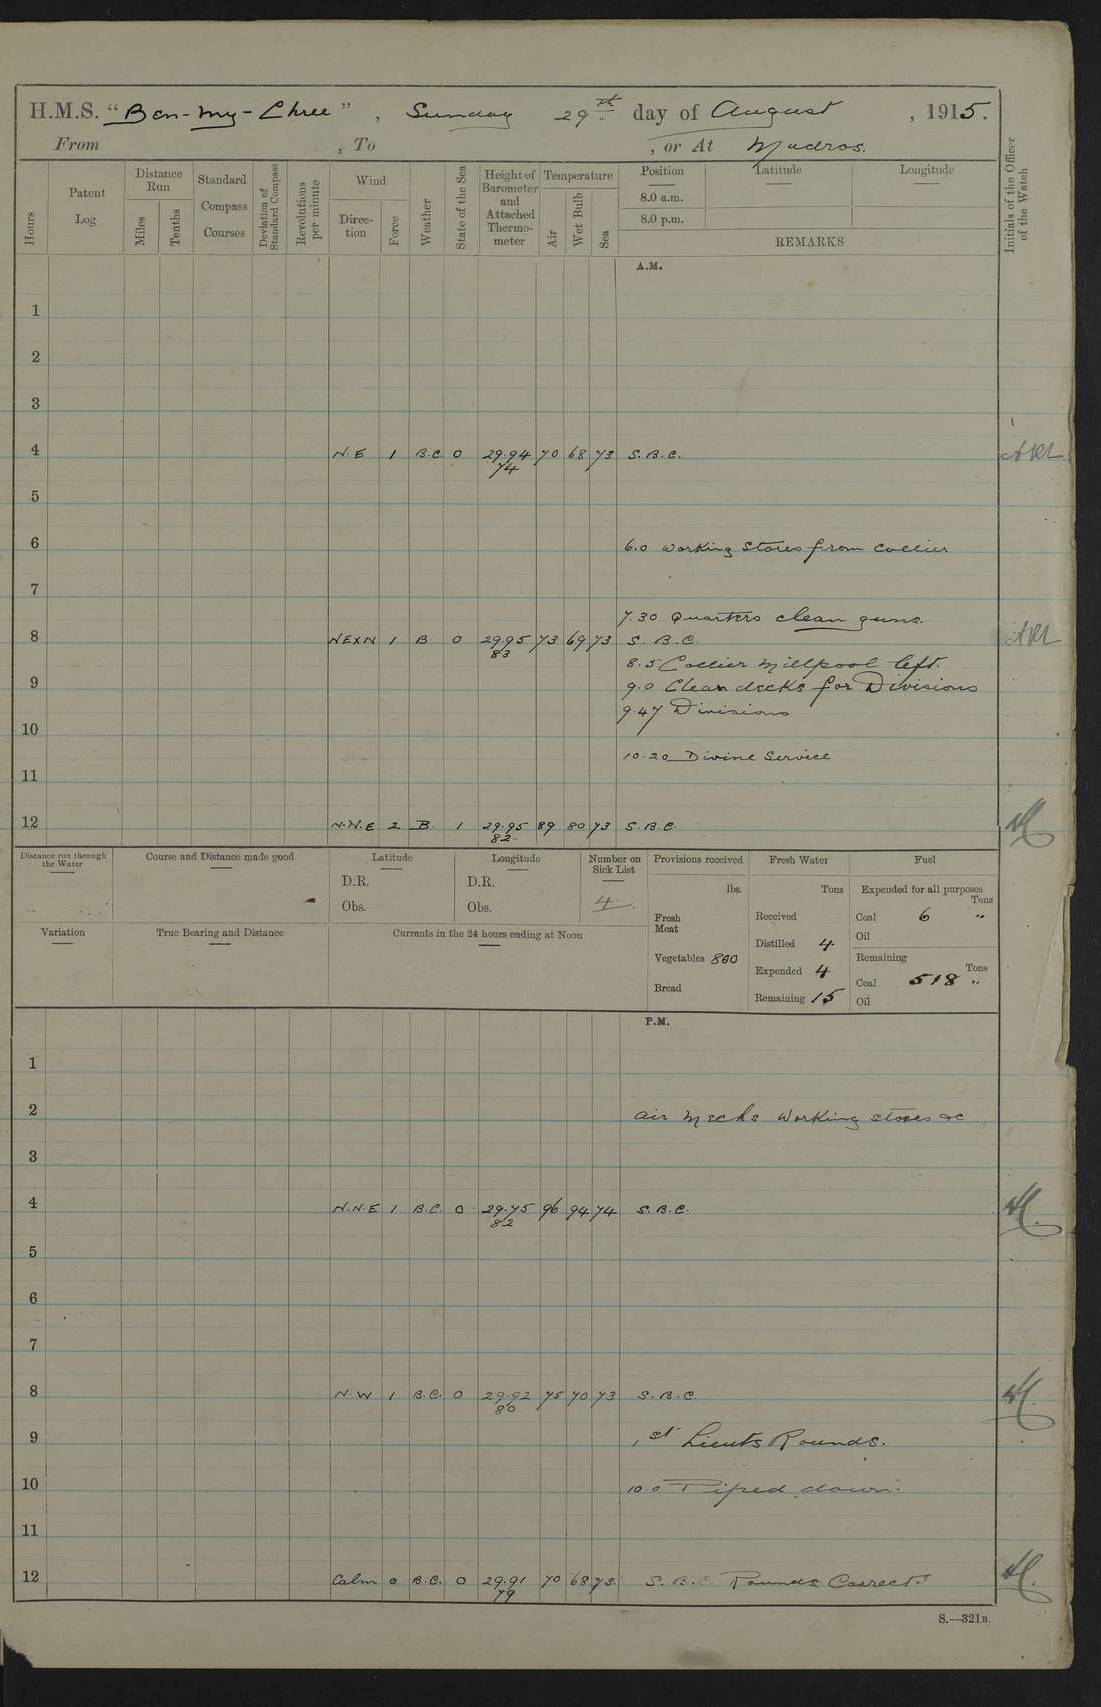 H.M.S. "Ben-my-Chree", Sunday 29th day of August, 1915.
From , To , or At Mudros.
Hours
Patent Log
Distance Run
Miles
Tenths
Standard Compass Courses
Deviation of Standard Compass
Revolutions per minute
Wind
Direction
Force
Weather
State of the Sea
Height of Barometer and Attached Thermometer
Temperature
Air
Wet Bulb
Sea
Position
8.0 a.m.
8.0 p.m.
Latitude
Longitude
REMARKS
Initials of the Officer of the Watch
A.M.
1
2
3
4 N.E 1 B.C 0 29.94 70 68 73 S.B.C.
74
5
6 6.0 Working Stores from Collier
7
7.30 Quarters clean guns.
8 NEXN 1 B 0 29.95 73 69 73 S.B.C.
83
8.5 Collier Millpool left.
9 9.0 Clear decks for Divisions
9.47 Divisions
10
10.20 Divine Service
11
12 N.N.E 2 B. 1 29.95 89 80 73 S.B.C.
82
Distance run through the Water
Course and Distance made good
Latitude
D.R.
Obs.
Longitude
D.R.
Obs.
Number on Sick List
4
Provisions received
lbs.
Fresh Meat
Vegetables 800
Bread
Fresh Water
Tons
Received
Distilled 4
Expended 4
Remaining 15
Fuel
Expended for all purposes
Tons
Coal 6 "
Oil
Remaining
Tons
Coal 518 "
Oil
Variation
True Bearing and Distance
Currents in the 24 hours ending at Noon
P.M.
1
2 Air Mechs Working stores &c
3
4 N.N.E 1 B.C. 0 29.75 96 94 74 S.B.C.
82
5
6
7
8 N.W 1 B.C. 0 29.92 75 70 73 S.B.C.
80
9 1st Lieuts Rounds.
10 10.0 Piped down.
11
12 Calm 0 B.C. 0 29.91 70 68 73. S.B.C Rounds Correct.
79
S.—321B.